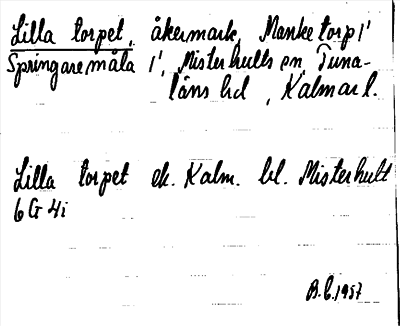 Lilla torpet, åkermark, Manketorp 1'
Springaremåla 1', Misterhults sn, Tuna-
läns hd, Kalmar l.
Lilla torpet ek. Kalm. bl. Misterhult
6 G 4i
B.C. 1957